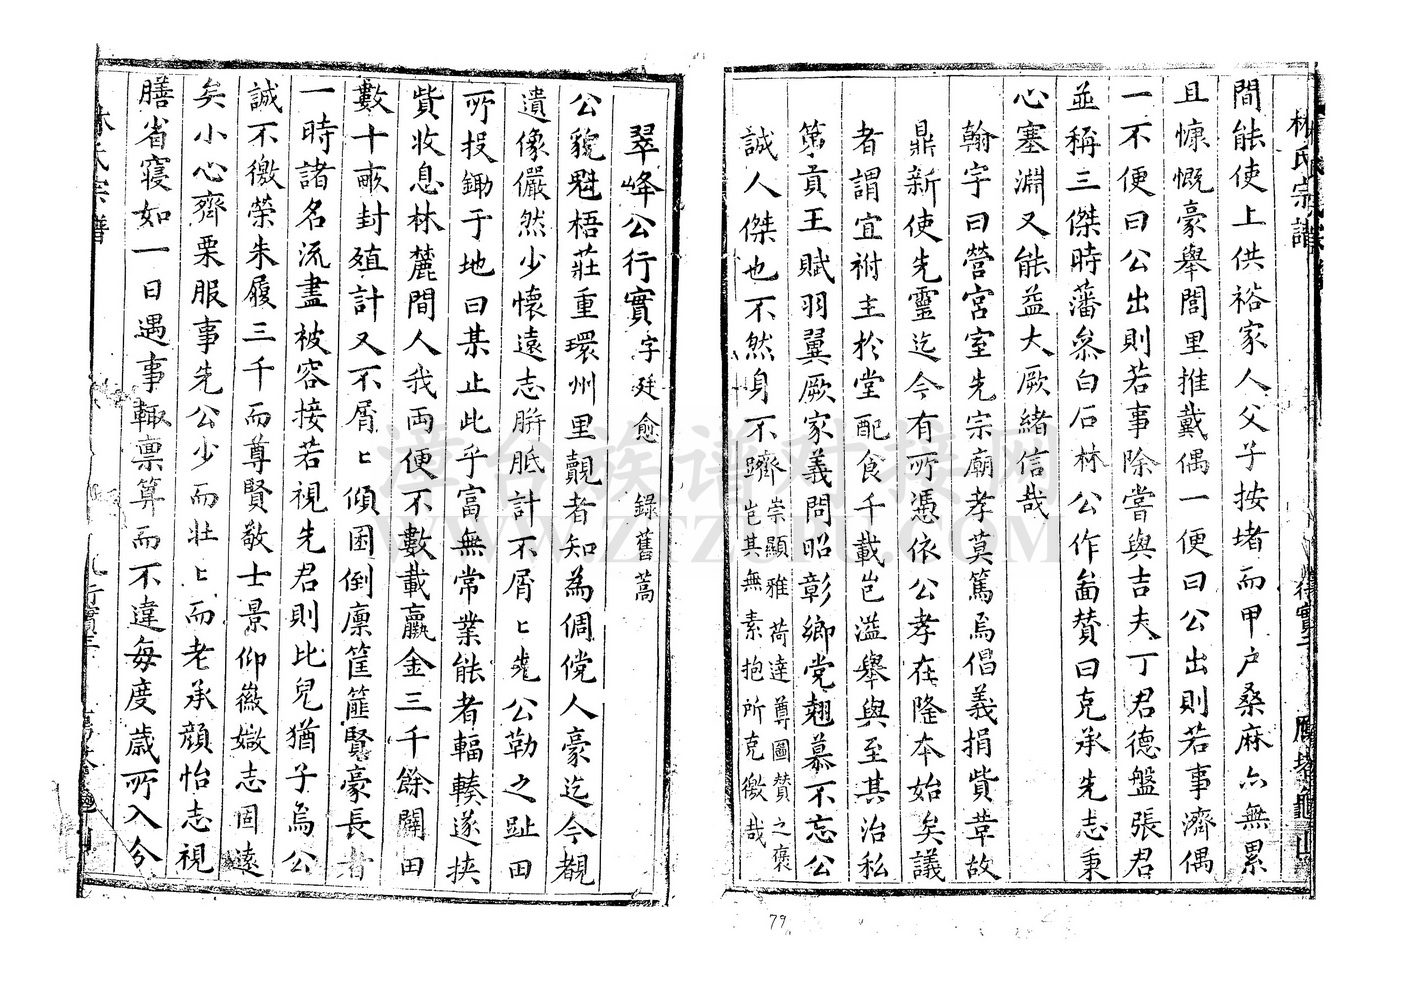 林氏宗譜
間能使上供裕家人父子按堵而甲户桑麻亦無累
且慷慨豪舉閭里推戴偶一便曰公出則若事濟偶
一不便曰公出則若事除嘗與吉夫丁君德盤張君
並稱三傑時藩叅白石林公作啚賛曰克承先志秉
心塞淵又能益大厥緒信哉
翰字曰營宫室先宗廟孝莫篤焉倡義捐貲葺故
鼎新使先靈迄今有所憑依公孝在隆本始矣議
者謂宜祔主於堂配食千載岂溢舉與至其治私
第貢王賦羽翼厥家義問昭彰鄉党翹慕不忘公
誠人傑也不然身不躋崇顯雅荷達尊圖賛之褒
岂其無素抱所克徵哉
翠峰公行實 字廷愈 錄舊蒿
公貌魁梧莊重環州里覿者知為倜儻人豪迄今覩
遺像儼然少懷遠志胼胝計不屑ヒ㐬公勒之趾田
所投鋤于地曰某止此乎富無常業能者輻輳遂挟
貲收息林麓間人我両便不數載贏金三千餘闢田
數十畝封殖計又不屑ヒ傾囷倒廪筐篚賢豪長者
一時諸名流盡被容接若視先君則比兒猶子焉公
誠不徼榮朱履三千而尊賢敬士景仰徽媺志固遠
矣小心齊栗服事先公少而壮ヒ而老承顔怡志視
膳省寝如一日遇事輙禀算而不違每度歲所入分
氏宗譜
行實三
79
漳台族谱对接网
WWW.ZTZUPU.COM